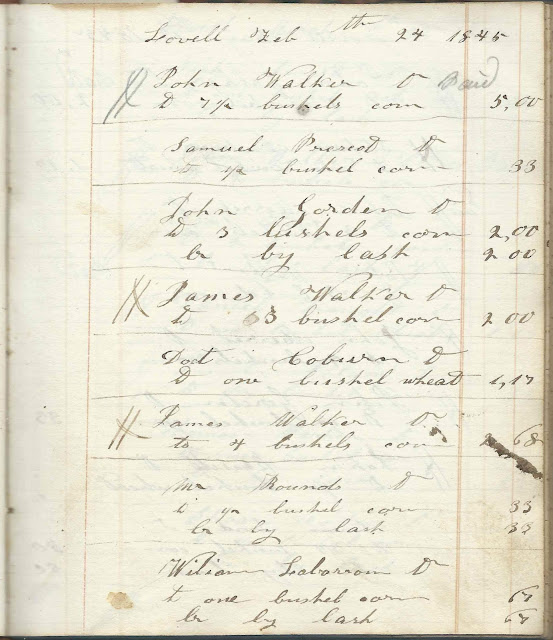 Lovell Feb th 24 1845
John Walker Dr Paid
to 7 1/2 bushels corn 5,00
Samuel Prescot Dr
to 1/2 bushel corn 33
John Gorden Dr
to 3 bushels corn 2,00
Cr by Cash 2 00
James Walker Dr
to 3 bushel corn 2 00
Doct Coburn Dr
to one bushel wheat 1,17
James Walker Dr
to 4 bushels corn 68
Mr Rounds Dr
to 1/2 bushel corn 33
Cr by Cash 33
Wiliam Dr
to one bushel corn 67
Cr by Cash 67